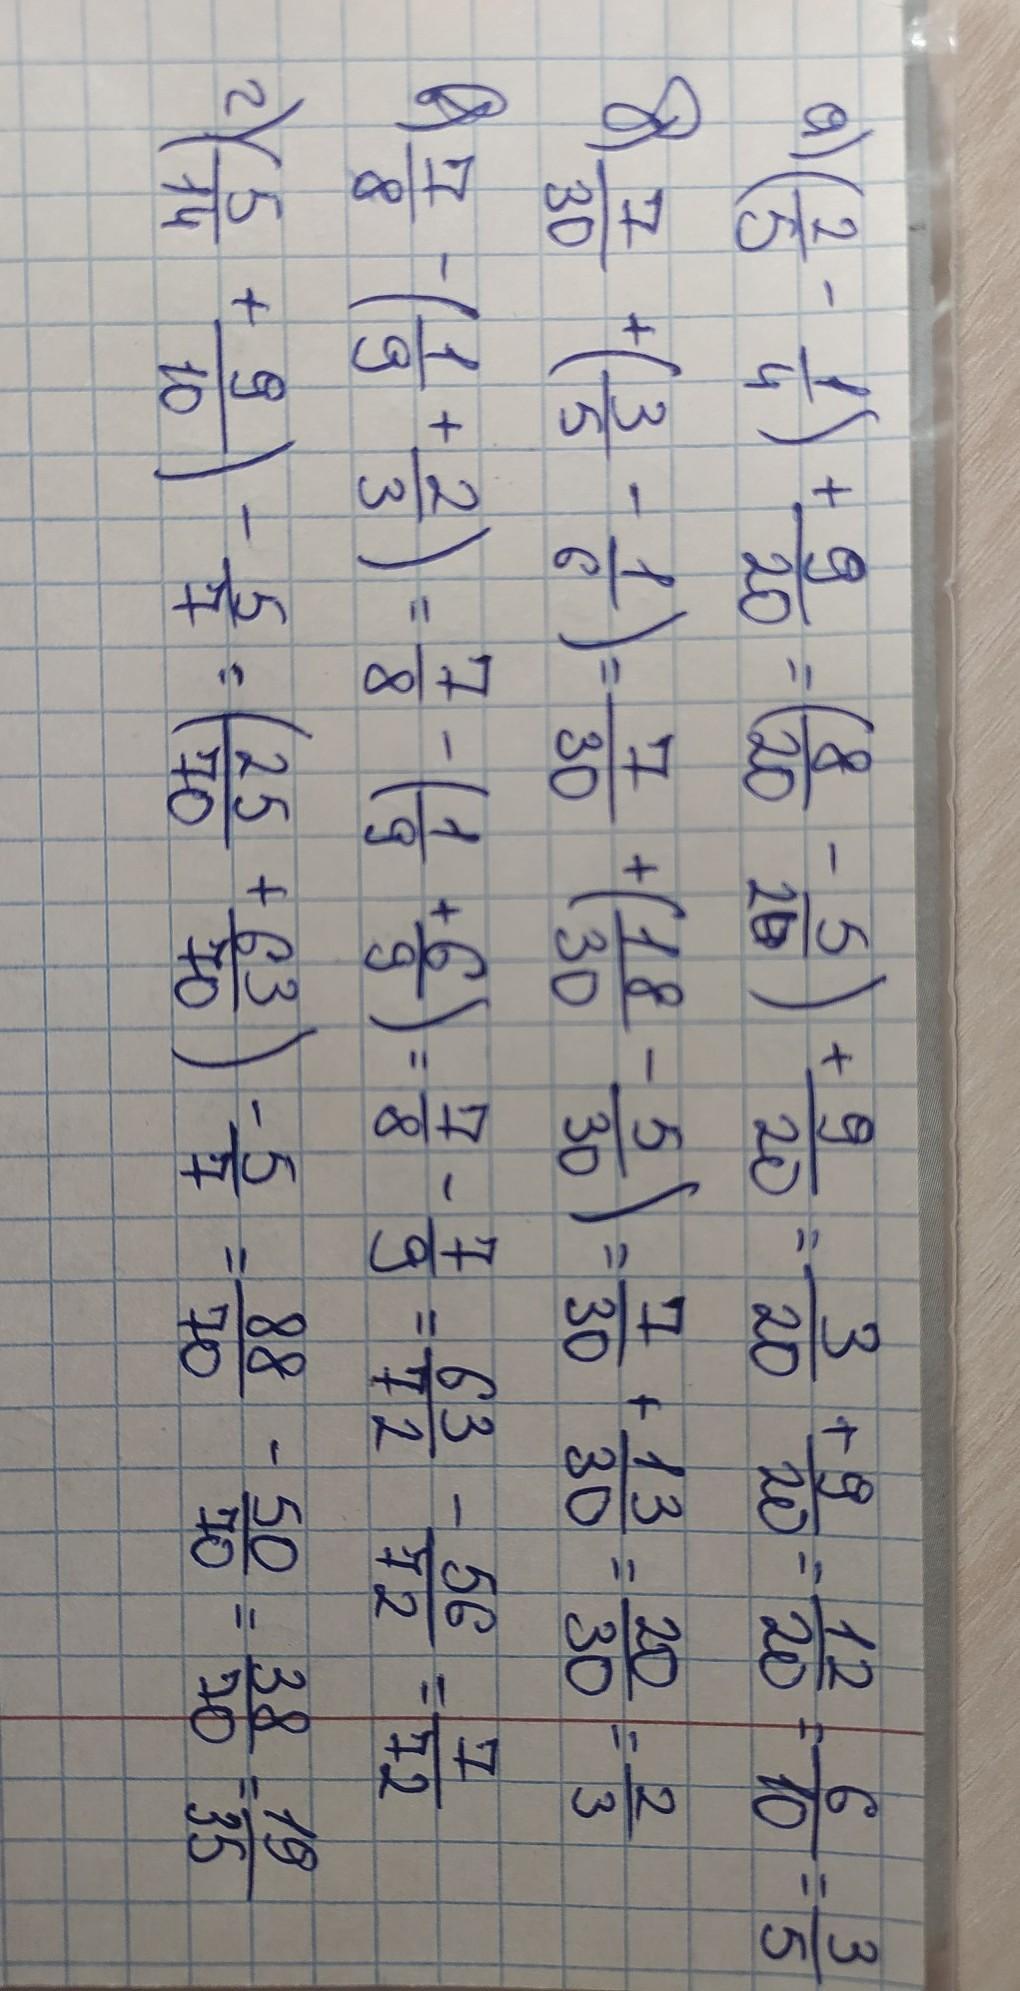 а) (2/5 - 1/4) + 9/20 = (8/20 - 5/20) + 9/20 = 3/20 + 9/20 = 12/20 = 6/10 = 3/5
б) 7/30 + (3/5 - 1/6) = 7/30 + (18/30 - 5/30) = 7/30 + 13/30 = 20/30 = 2/3
в) 7/8 - (1/9 + 2/3) = 7/8 - (1/9 + 6/9) = 7/8 - 7/9 = 63/72 - 56/72 = 7/72
г) (5/14 + 9/10) - 5/7 = (25/70 + 63/70) - 5/7 = 88/70 - 50/70 = 38/70 = 19/35